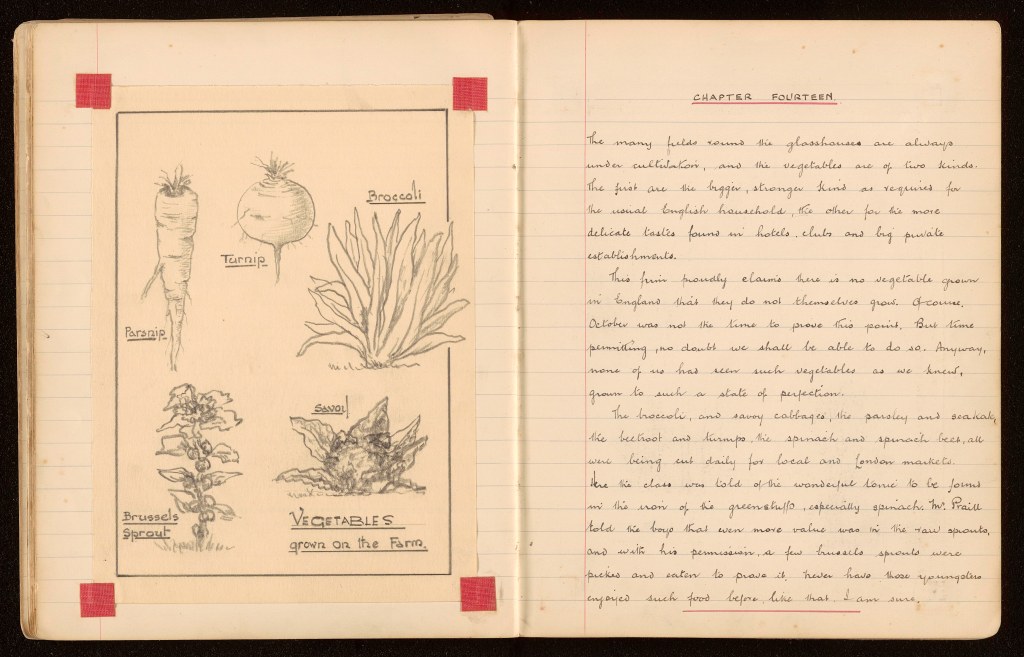 Broccoli
Turnip
Parsnip
Savoy
Brussels
Sprout
VEGETABLES
grown on the Farm.
CHAPTER FOURTEEN.
The many fields round the glasshouses are always
under cultivation, and the vegetables are of two kinds.
The first are the bigger, stronger kind as requires for
the usual English household, the other for the more
delicate tastes found in hotels, clubs and big private
establishments.
This firm proudly claims there is no vegetable grown
in England that they do not themselves grow. Of course,
October was not the time to prove this point. But time
permitting, no doubt we shall be able to do so. Anyway,
none of us had seen such vegetables as we knew,
grown to such a state of perfection.
The broccoli, and savoy cabbages, the parsley and seakale,
the beetroot and turnips, the spinach and spinach beet, all
were being cut daily for local and London markets.
Here the class was told of the wonderful tonic to be found
in the iron of the greenstuffs, especially spinach. Mr. Praill
told the boys that even more value was in the raw sprouts,
and with his permission, a few brussels sprouts were
picked and eaten to prove it. Never have those youngsters
enjoyed such food before like that I am sure.